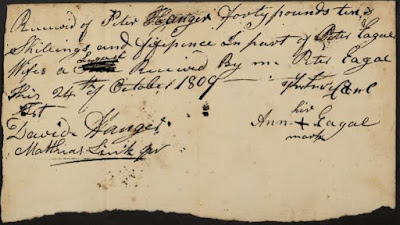 Received of Peter Hanger forty pounds ten
Shillings and sixpence In part of Peter Eagal
Wifes a Legacy Received By me Peter Eagal
This 24th of October 1809
Test
his
David Hanger Ann + Eagal
mark
Mathias Link Jur